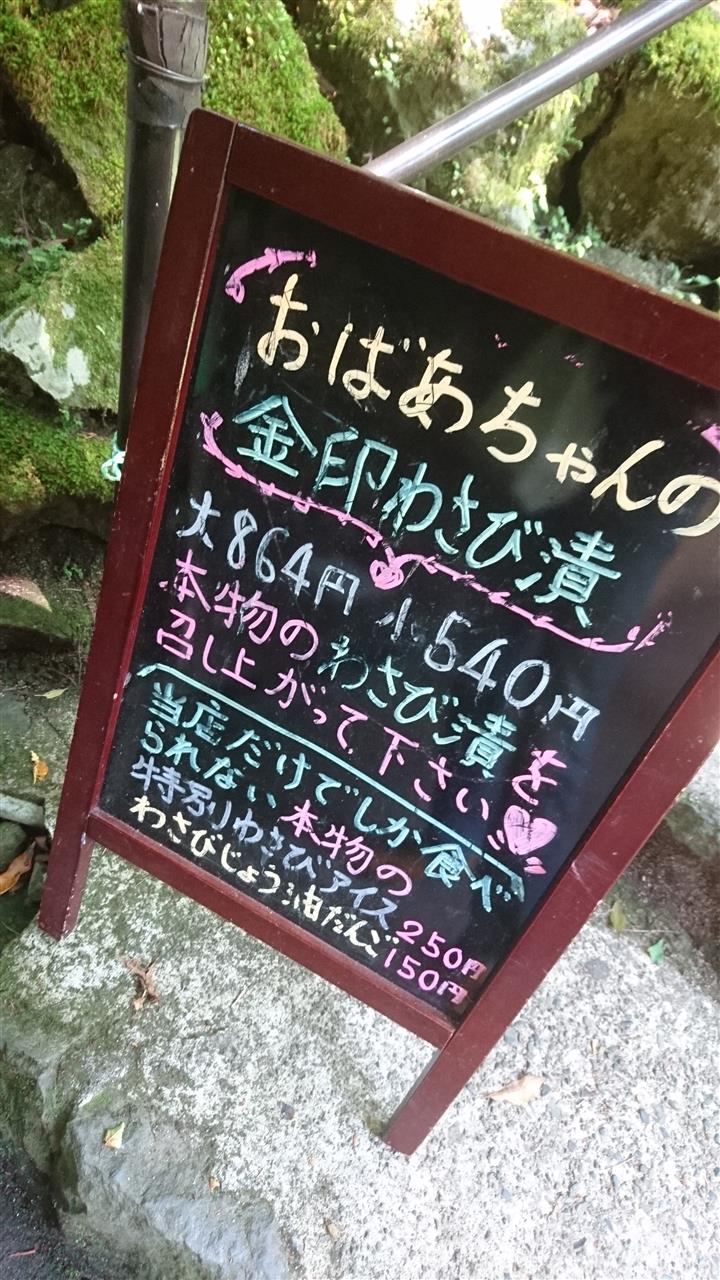 おばあちゃんの
金印わさび漬
大864円 小540円
本物のわさび漬を
召し上がって下さい
当店だけでしか食べ
られない 本物の
特別りわさびアイス 250円
わさびじょう油だんご 150円